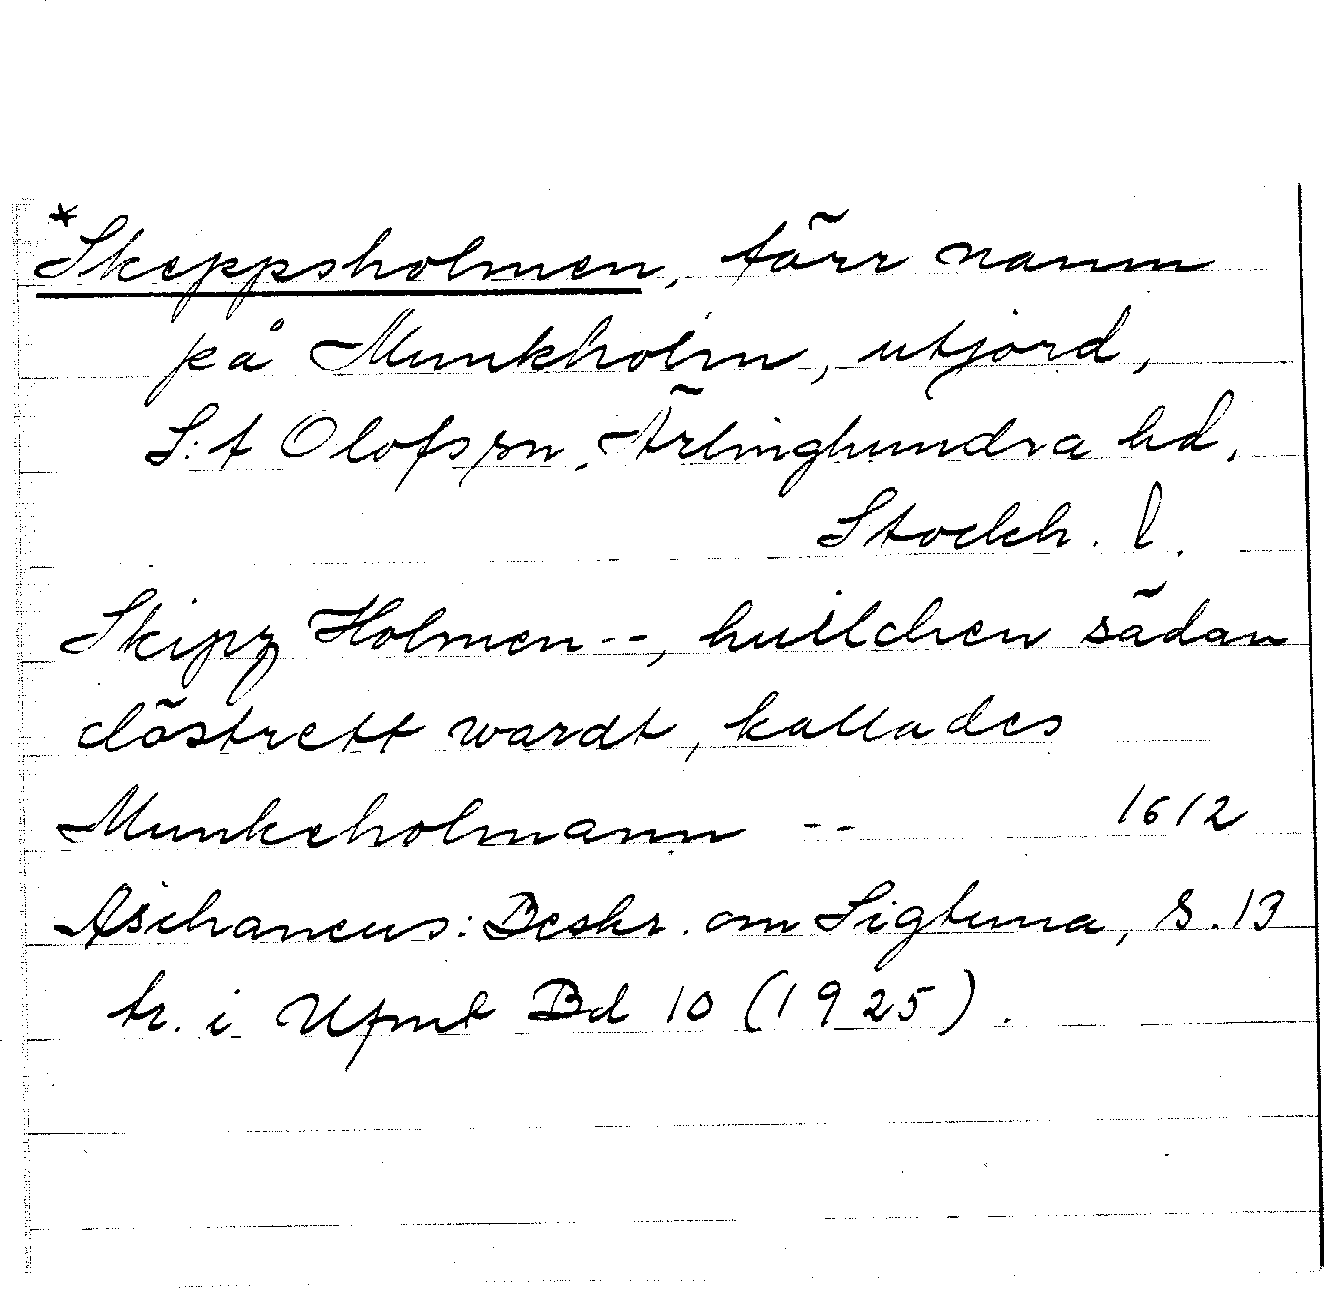 *Skeppsholmen, förr namn
på Munkholm, utjord,
S:t Olofs sn, Ärlinghundra hd,
Stockh. l.
Skipz Holmen --, huilchen sädan
clöstrett wardt, kallades
Munkeholmann -- 1612
Aschaneus: Beskr. om Sigtuna, s. 13
tr. i Ufmt Bd 10 (1925).